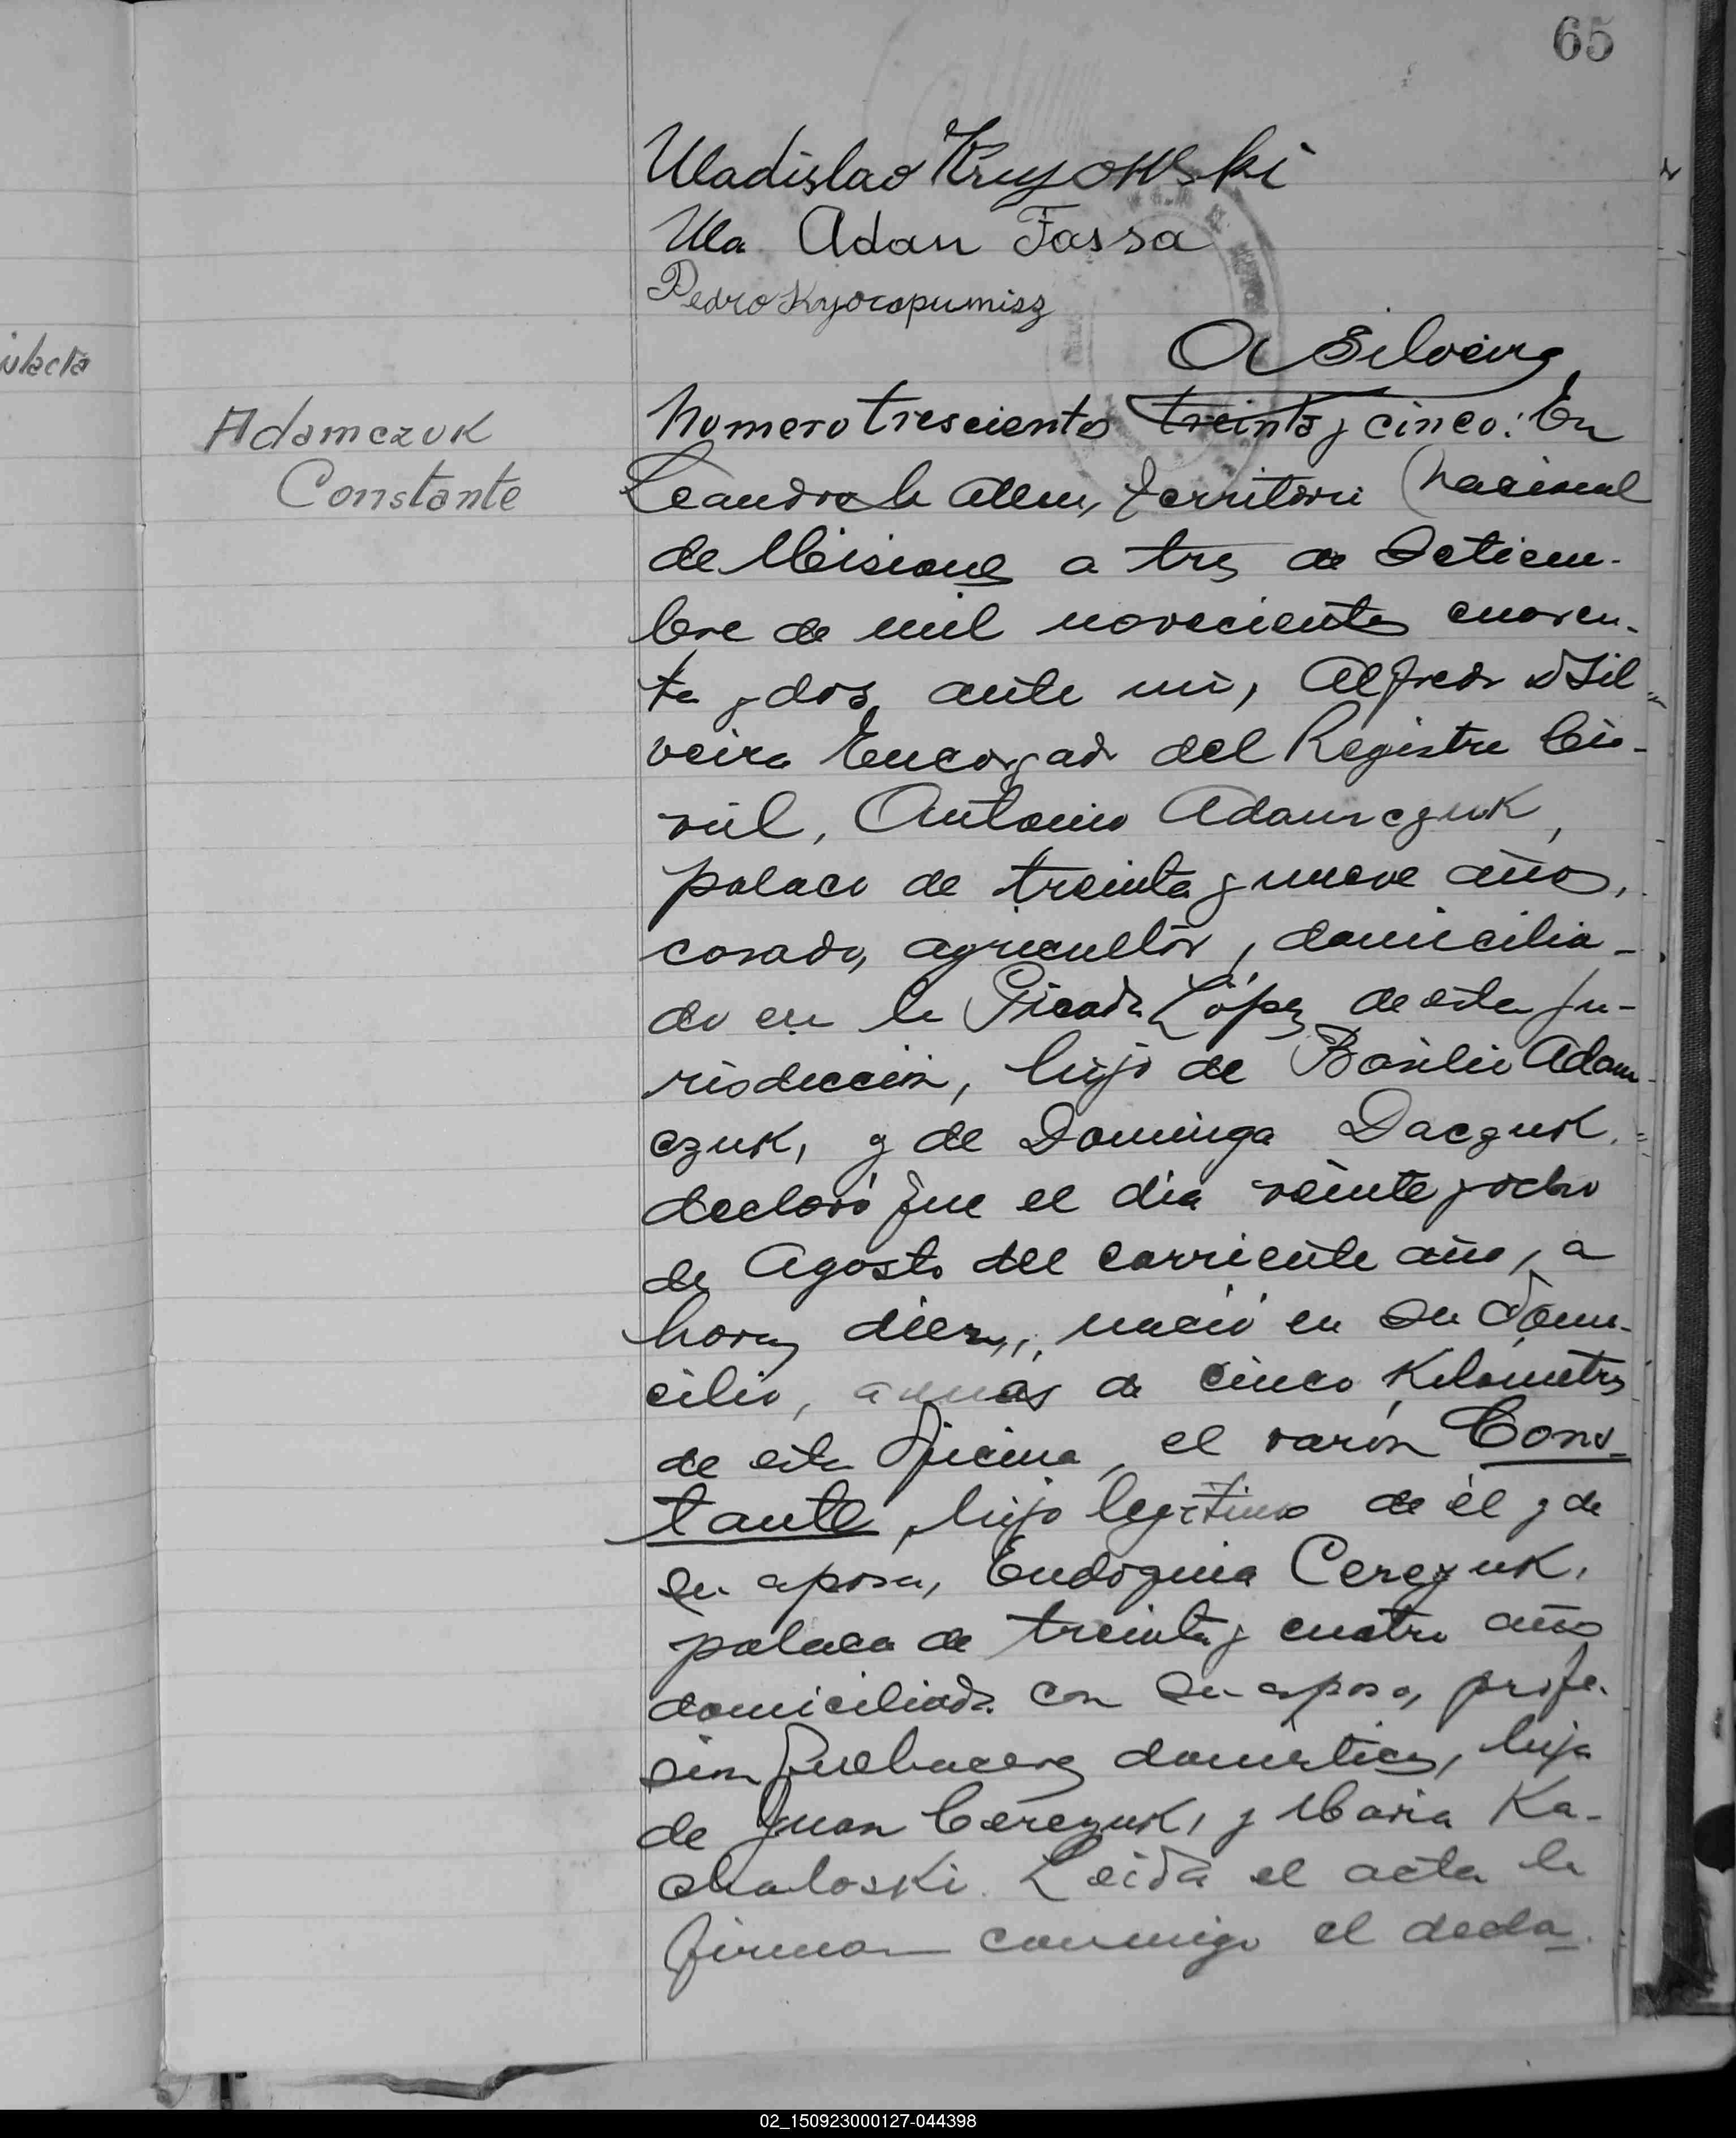 65
Uladislao Kruyowski
Ula Adan Fassa
Pedro
A Silveira
ulacta
Adamczuk
Constante
Numero trescientos treinta y cinco: En
Leandro N Alem, Territorio Nacional
de Misiones a tres de Setiem-
bre de mil novecientos cuaren-
ta y dos, ante mi, Alfredo D Sil-
veira Encargado del Registro Ci-
vil, Antonio Adamczuk,
polaco de treinta y nueve años,
casado, agricultor, domicilia-
do en la Picada López de esta ju-
risdicción, hijo de Basilio Adam-
czuk, y de Dominga Daczuk.
declaró que el dia veinte y ocho
de Agosto del corriente año, a
horas diez, nació en su domi-
cilio, a mas de cinco Kilometros
de esta Oficina, el varón Cons-
tante, hijo legitimo de él y de
su esposa, Eudoquia Cerezuk,
polaca de treinta y cuatro años
domiciliada con su esposo, profe-
sion quehaceres domesticos, hija
de Juan Cerezuk, y Maria Ka-
chaloski. Leida el acta la
firman conmigo el decla-
02_150923000127-044398